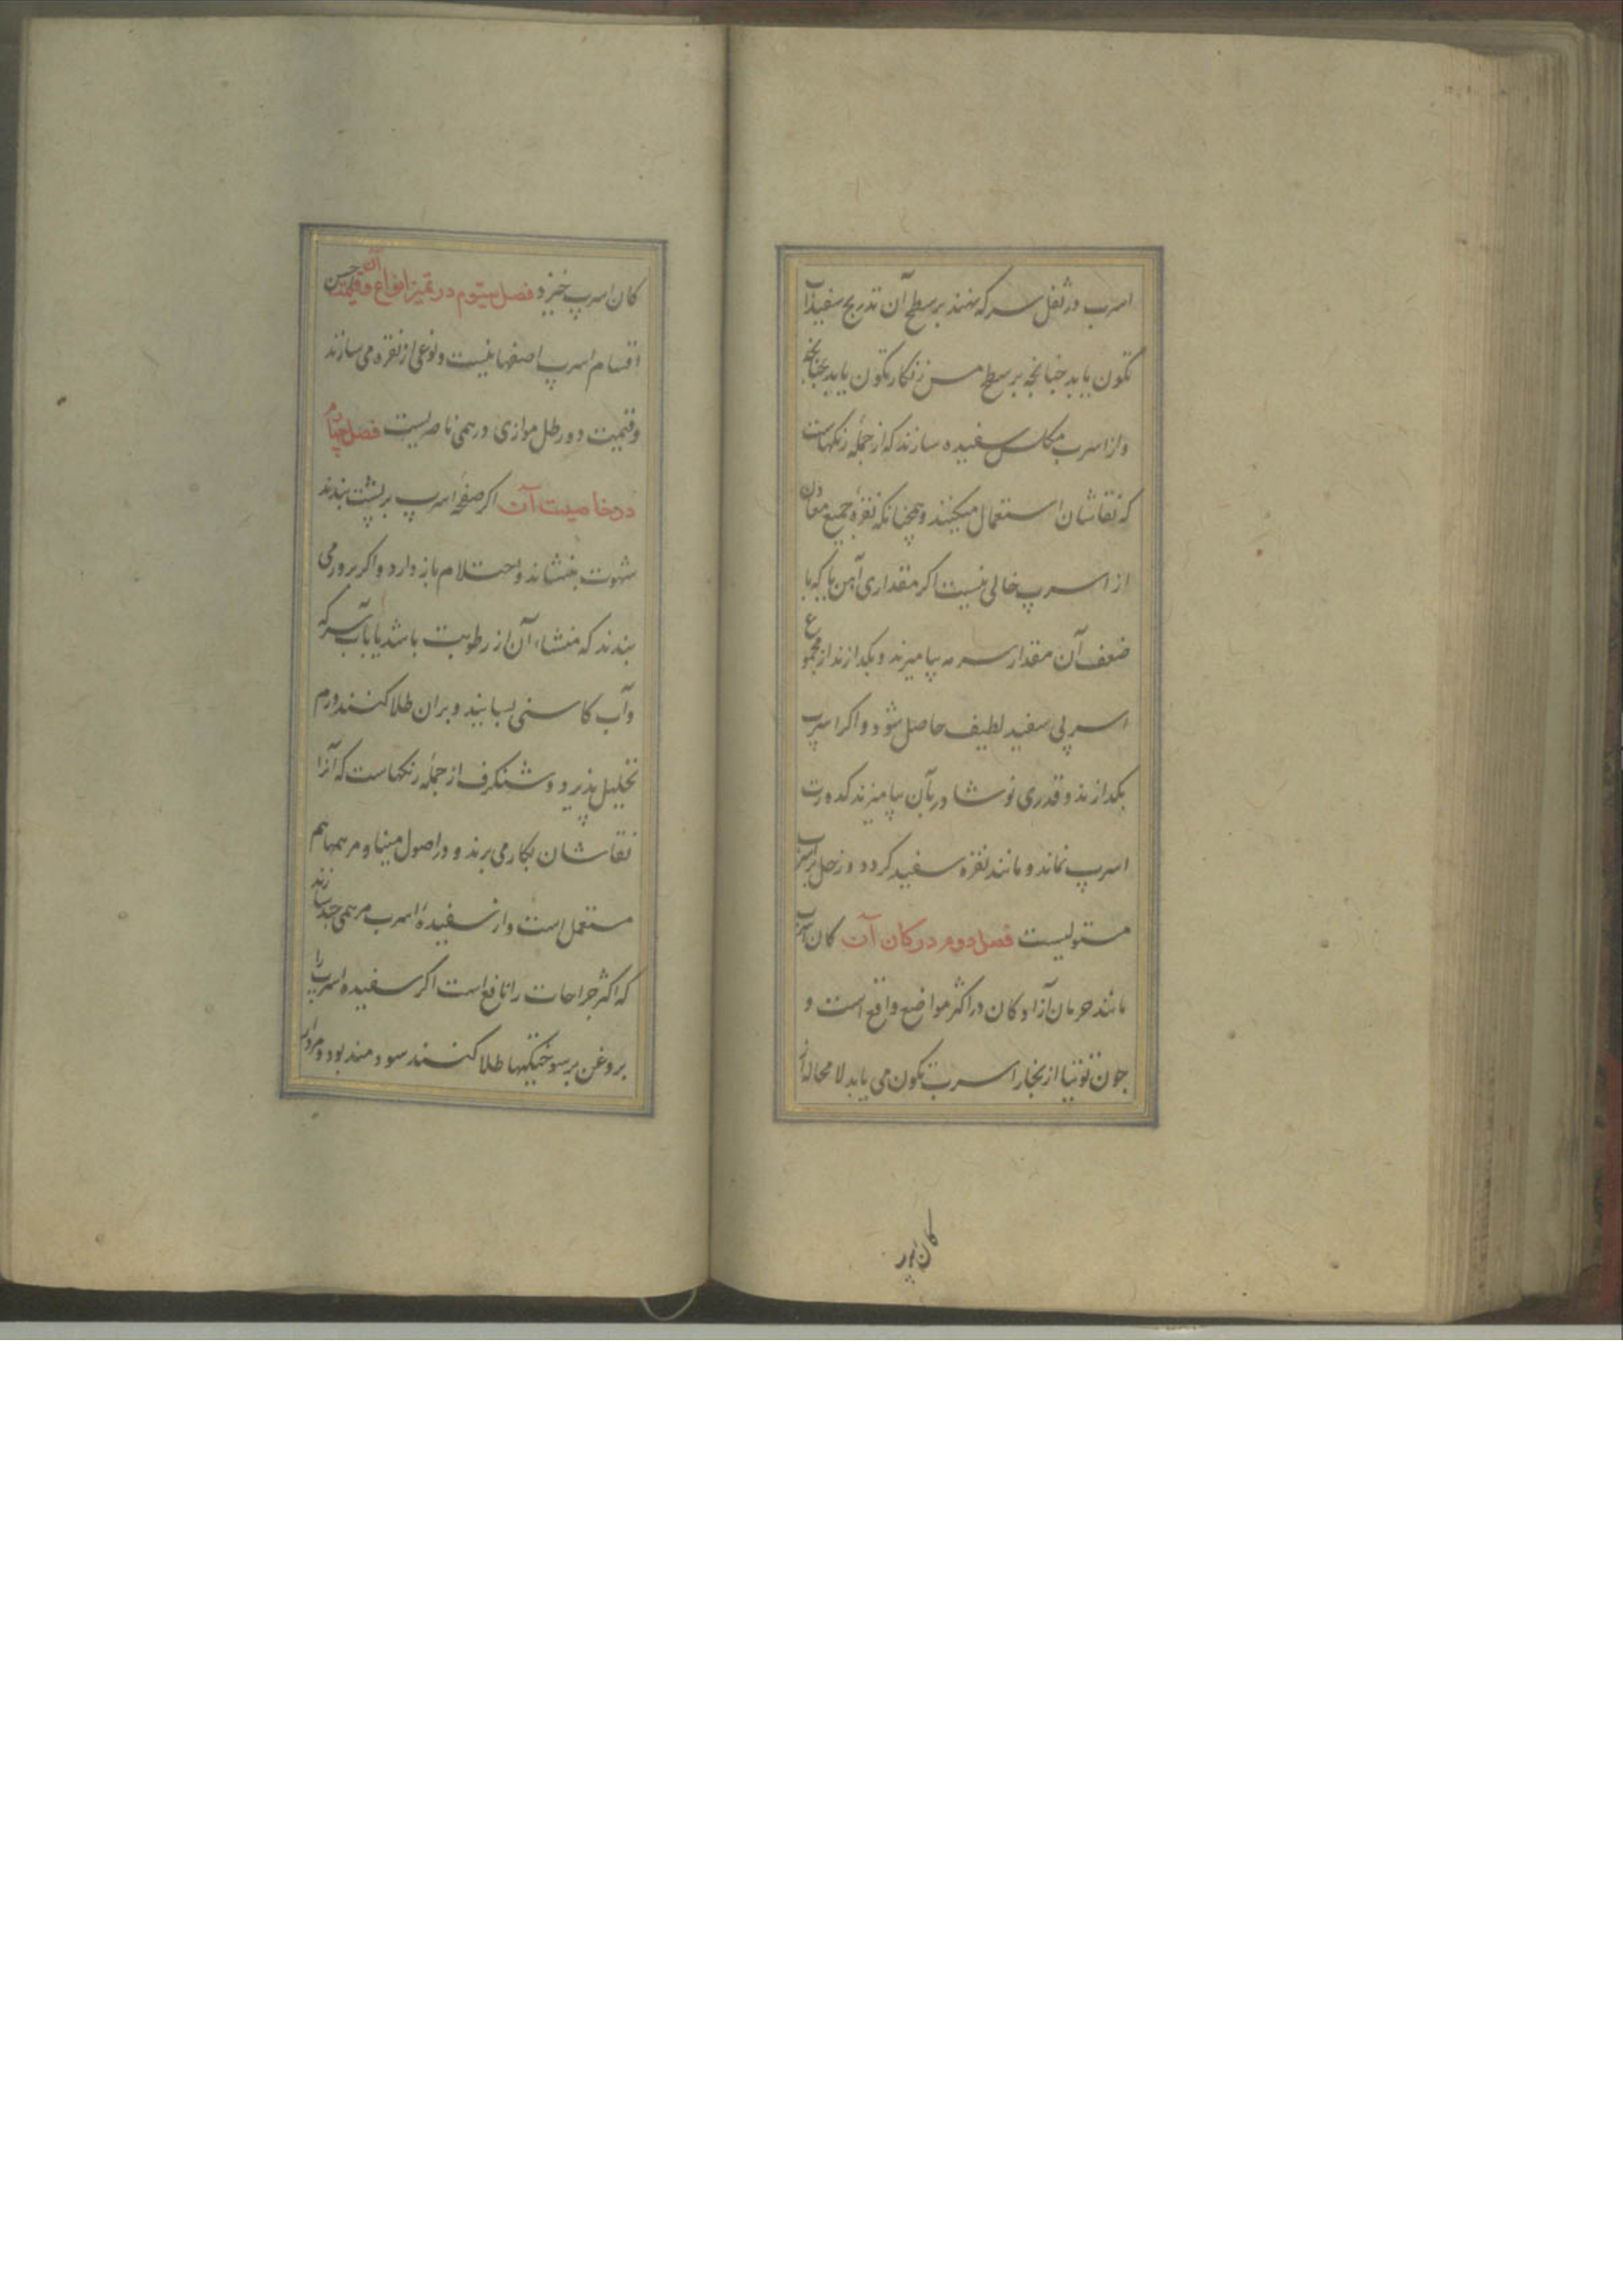 اسرب در ثفل سرکه نهند بر سطح آن تدریج سفیداب
تکون یابد چنانچه بر سطح مس زنکار تکون یابد
واز اسرب مکلس سفیده سازند که از جمله رنکهاست
که نقاشان استعمال میکنند و همچنانکه نقره جمیع معادن
از اسرپ خالی نیست اکر مقداری آهن با
ضعف آن مقدار سرمه بیامیزند و بکدازند از مجموع
اسربی سفید لطیف حاصل شود و اکر اسرب
بکدازند و قدری نوشادر بآن بیامیزند کدورت
اسرپ نماند و مانند نقره سفید کردد و زحل بر اسرب
مستولیست فصل دوم در کان آن کان اسرب
مانند حرمان آزادکان در اکثر مواضع واقع است و
جون توتیا از بخار اسرب تکون می یابد لا محاله از
کان پور
کان اسرپ خیزد فصل سیوم در تمیز انواع آن و قیمت احسن
اقسام اسرپ اصفهانیست و نوعی از نقره می سازند
و قیمت دو رطل موازی درهمی ناصریست فصل چهارم
در خاصیت آن اکر صفحهٔ اسرپ بر پشت بندند
شهوت بنشاند و احتلام باز دارد و اکر بر ورمی
بندند که منشاء آن از رطوبت باشد یا بآب سرکه
وآب کاسنی بسایند و بران طلا کنند ورم
تحلیل پذیرد و شنکرف از جمله رنکهاست که آنرا
نقاشان بکار می برند و در اصول مینا و مرهمها هم
مستعمل است و از سفیدهٔ اسرب مرهمی سازند
که اکثر جراحات را نافع است اکر سفیده اسرب را
بروغن بر سوختکیها طلا کنند سودمند بود و